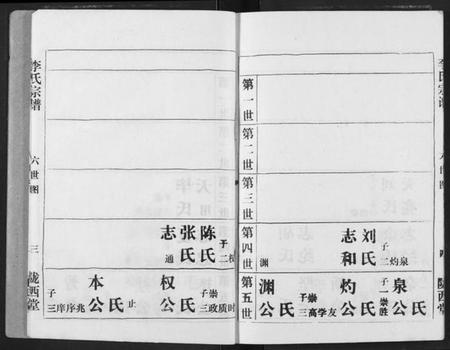 李氏宗谱
第一世
第二世
第三世
第四世
第五世
刘氏
志和
子三
泉灼渊
泉公氏
子一崇胜
灼公氏
子三崇高学友
渊公氏
李氏宗谱
六世图
三
陇西堂
陈氏
张氏
子二权
志
通
子三崇政质时
权公氏
止
本公氏
子三庠序兆
陇西堂